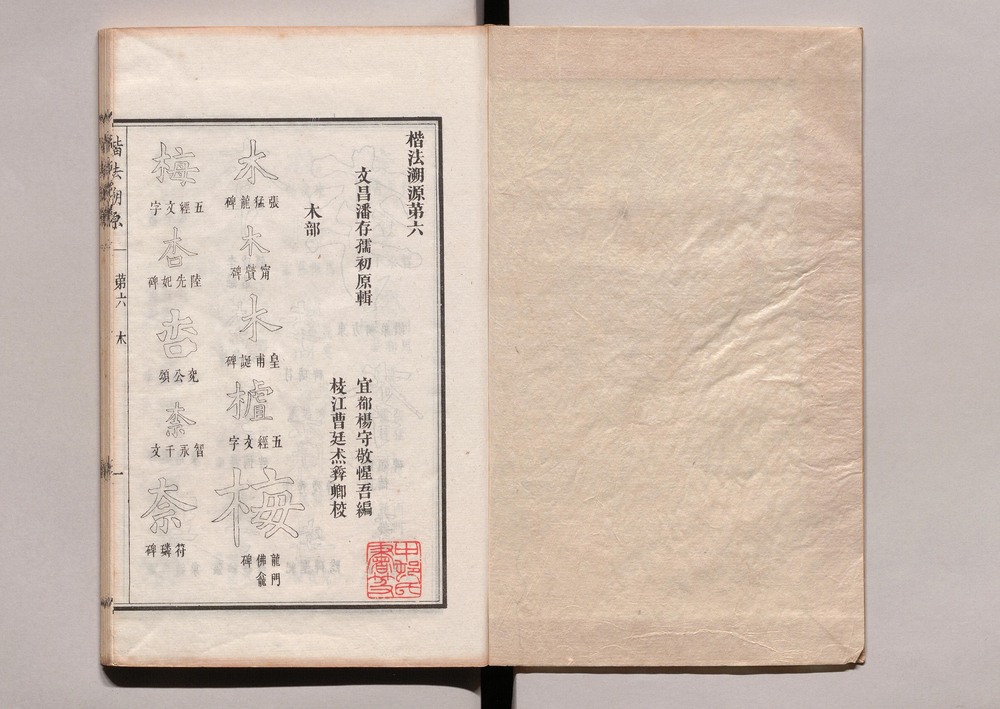 楷法溯源第六
文昌潘存孺初原輯
宜都楊守敬惺吾編
枝江曹廷杰彝卿校
木部
木
張猛龍碑
木
甯贙碑
木
皇甫誕碑
櫨
五經文字
梅
龍門佛龕碑
梅
五經文字
杏
陸先妃碑
杏
兗公頌
柰
智永千文
柰
符璘碑
楷法溯原
第六
木
一